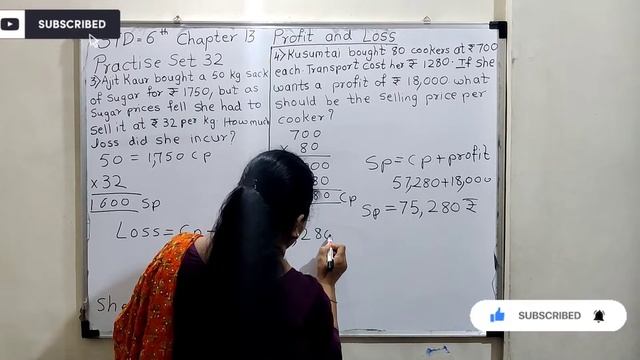 SUBSCRIBED
STD = 6th Chapter 13 Profit and Loss
Practise Set 32
3) Ajit Kaur bought a 50 kg sack
of Sugar for ₹ 1750, but as
Sugar prices fell she had to
sell it at ₹ 32 per kg. How much
loss did she incur?
50 = 1,750 CP
x 32
1600 SP
Loss = CP
Sh
4) Kusumtai bought 80 cookers at ₹ 700
each. Transport cost her ₹ 1280. If she
wants a profit of ₹ 18,000 what
should be the selling price per
cooker?
700
x 80
00
80
80 CP
SP = CP + profit
57,280 + 18,000
SP = 75,280 ₹
SUBSCRIBED